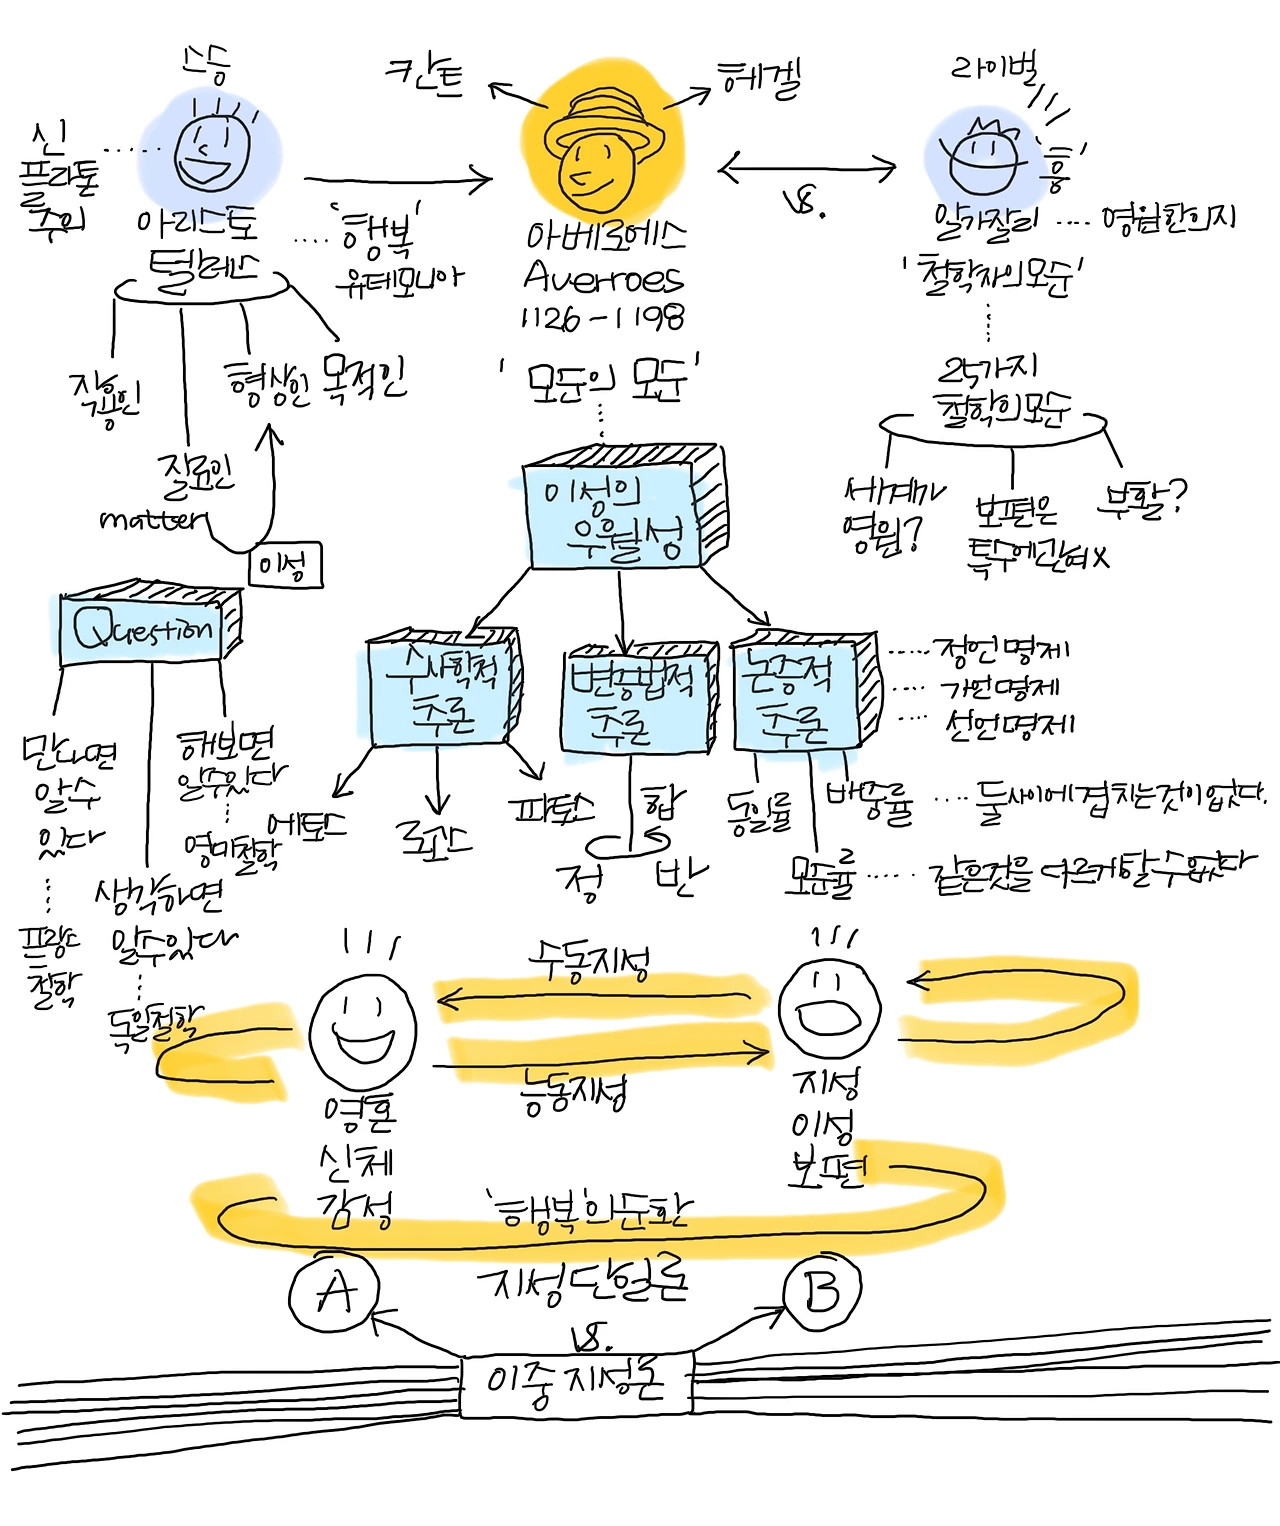 스승
칸트
헤겔
라이벌
신
플라톤
주의
아리스토
텔레스
'행복'
유데모니아
아베로에스
Averroes
1126-1198
vs.
'흥'
알가잘리
영원한의지
'철학자의모순'
작용인
질료인
형상인
목적인
matter
이성
'모순의 모순'
25가지
철학의모순
세계가
영원?
보편은
특수에관여x
부활?
이성의
우월성
Question
만나면
알수
있다
프랑스
철학
생각하면
알수있다
독일철학
해보면
알수있다
영미철학
수사학적
추론
에토스
로고스
파토스
변증법적
추론
정
합
반
논증적
추론
정언명제
가언명제
선언명제
동일률
모순률
배중률
둘사이에겹치는것이없다.
같은것을 다르게할수없다
수동지성
능동지성
영혼
신체
감성
지성
이성
보편
'행복'의순환
A
지성단일론
B
vs.
이중지성론